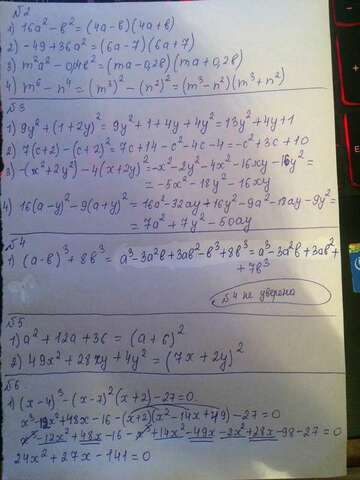 №2
1) 16a² - в² = (4a - в)(4a + в)
2) -49 + 36a² = (6a - 7)(6a + 7)
3) m²a² - 0,4в² = (ma - 0,2в)(ma + 0,2в)
4) m⁶ - n⁴ = (m³)² - (n²)² = (m³ - n²)(m³ + n²)
№3
1) 9y² + (1 + 2y)² = 9y² + 1 + 4y + 4y² = 13y² + 4y + 1
2) 7(c+2) - (c+2)² = 7c + 14 - c² - 4c - 4 = -c² + 3c + 10
3) -(x² + 2y²) - 4(x + 2y)² = -x² - 2y² - 4x² - 16xy - 16y² =
= -5x² - 18y² - 16xy
4) 16(a-y)² - 9(a+y)² = 16a² - 32ay + 16y² - 9a² - 18ay - 9y² =
= 7a² + 7y² - 50ay
№4
1) (a-в)³ + 8в³ = a³ - 3a²в + 3aв² - в³ + 8в³ = a³ - 3a²в + 3aв² +
+ 7в³
№4 не уверена
№5
1) a² + 12a + 36 = (a + 6)²
2) 49x² + 28xy + 4y² = (7x + 2y)²
№6
1) (x-4)³ - (x-7)²(x+2) - 27 = 0
x³ - 12x² + 48x - 16 - (x+2)(x² - 14x + 49) - 27 = 0
x³ - 12x² + 48x - 16 - x³ + 14x² - 49x - 2x² + 28x - 98 - 27 = 0
24x² + 27x - 141 = 0